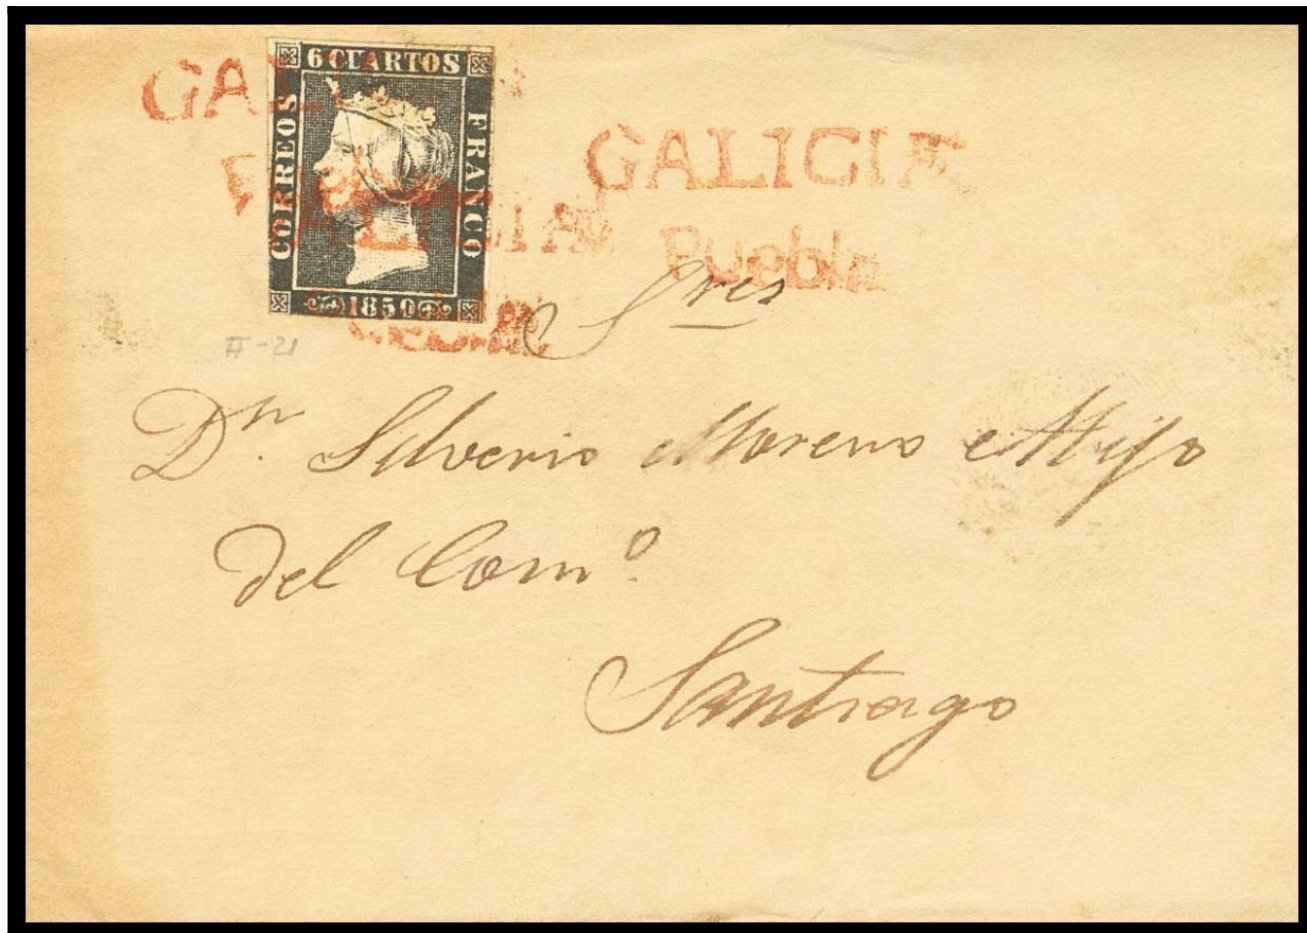 6 CUARTOS
CORREOS
FRANCO
1850
GALICIA
GALICIA
Puebla
II-21
Sres
Dn. Silverio Moreno e Hijo
del Como.
Santiago